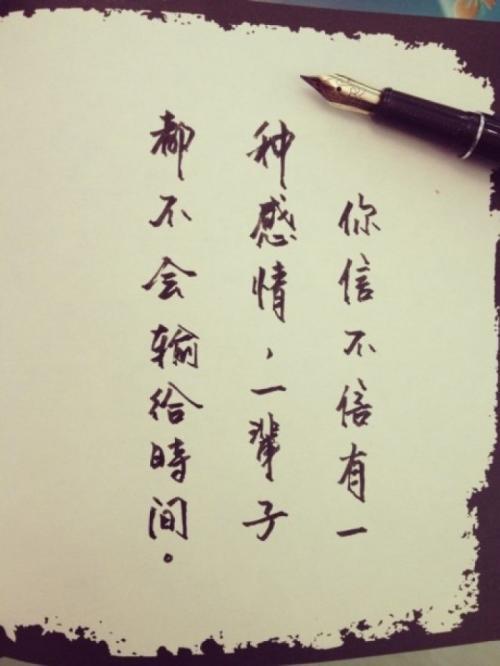 你信不信有一
种感情，一辈子
都不会输给時间。